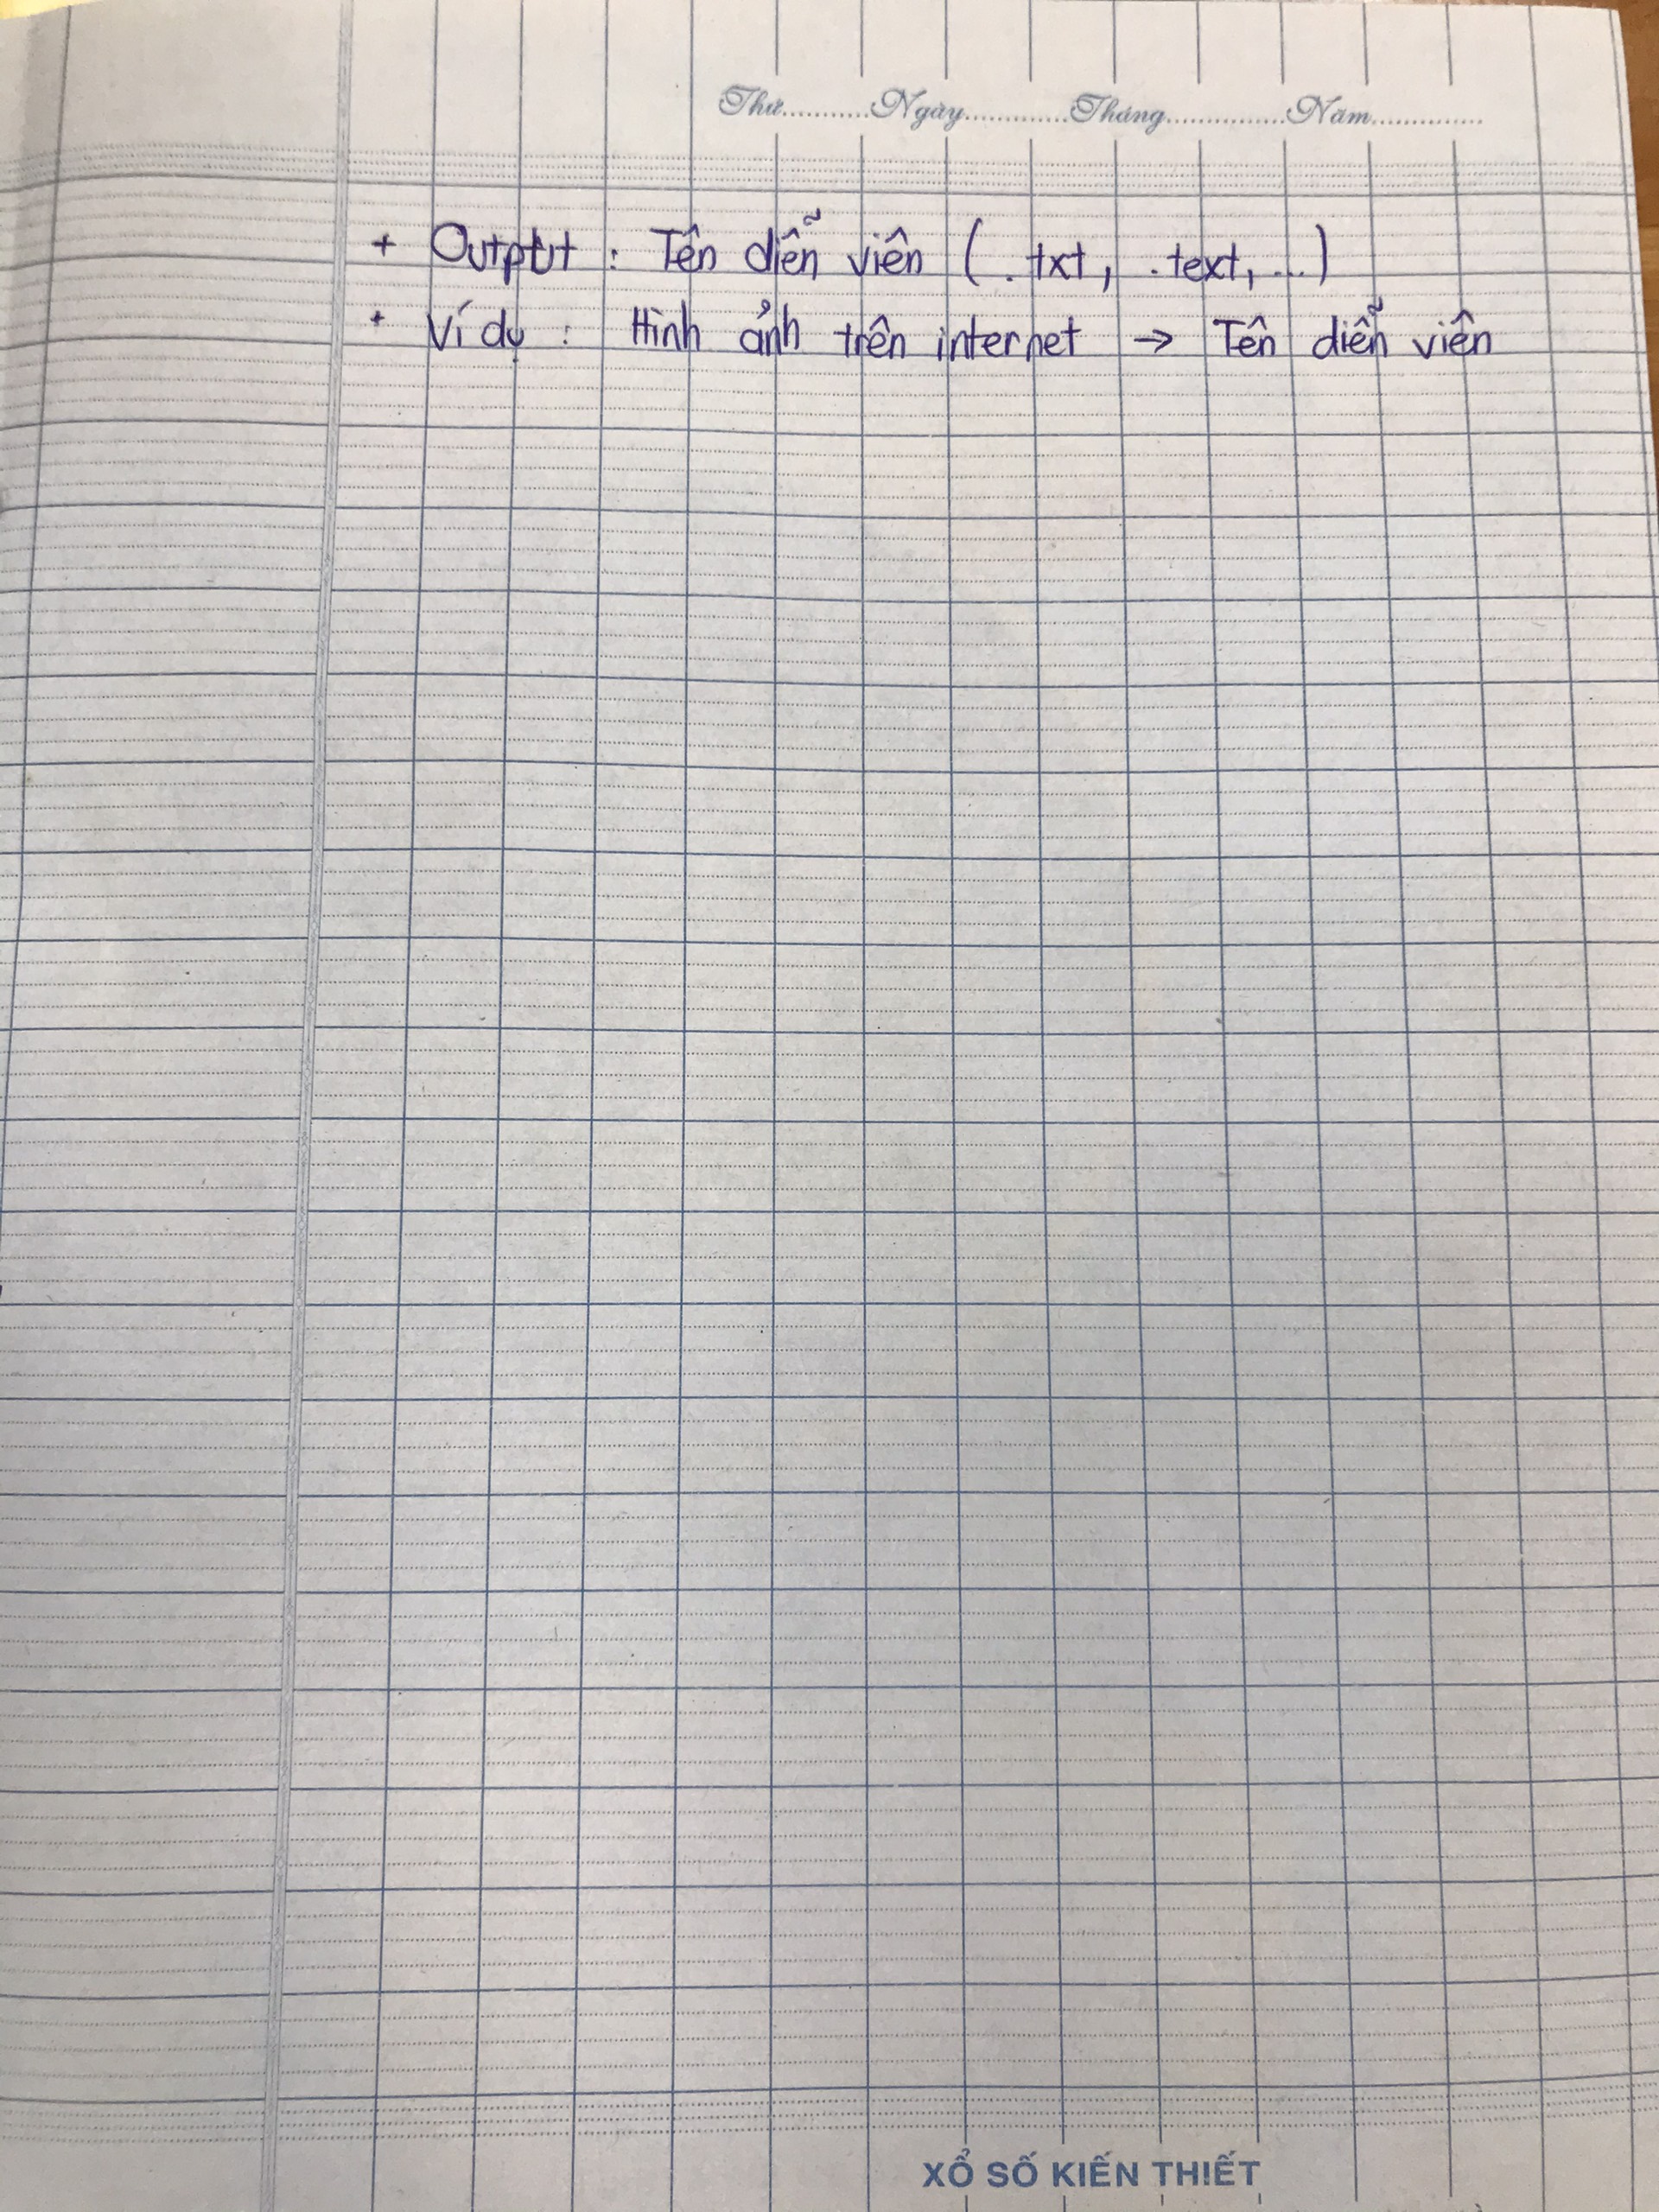 Thứ...........Ngày.............Tháng...............Năm..............
+ Output : Tên diễn viên ( .txt, .text, ...)
+ Ví dụ : Hình ảnh trên internet → Tên diễn viên
XỔ SỐ KIẾN THIẾT